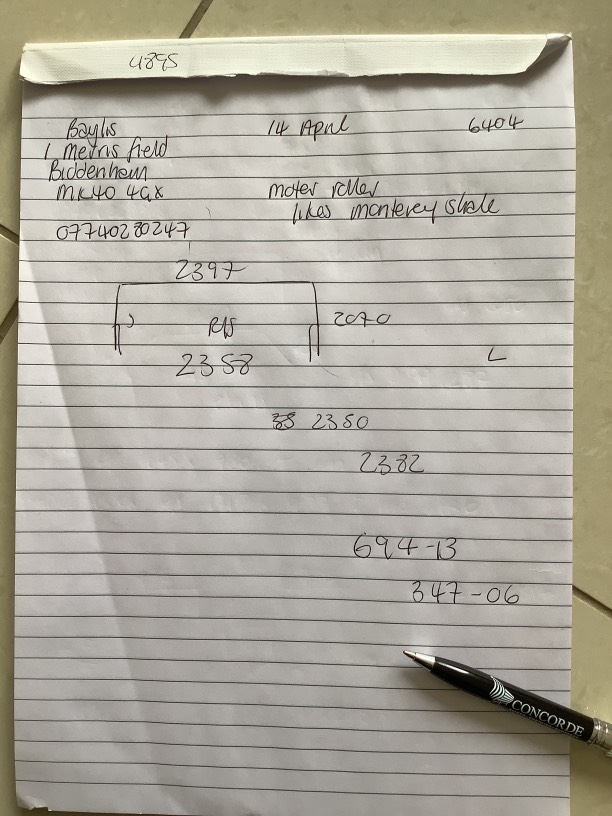 4895
Baylis 14 April 6404
1 Metris field
Biddenham
MK40 4GX Moter roller
likes monterey shale
07740280247
2397
R/S 2070
2358
L
2350
2382
694-13
347-06
CONCORDE